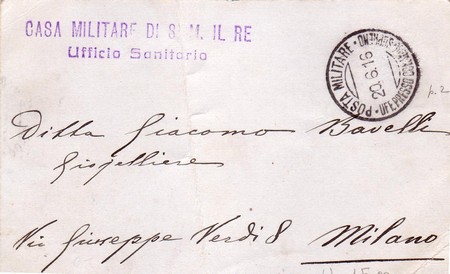 CASA MILITARE DI S. M. IL RE
Ufficio Sanitario
POSTA MILITARE
20.6.16
Ditta Giacomo Bavelli
Gioielliere
Via Giuseppe Verdi 8 Milano